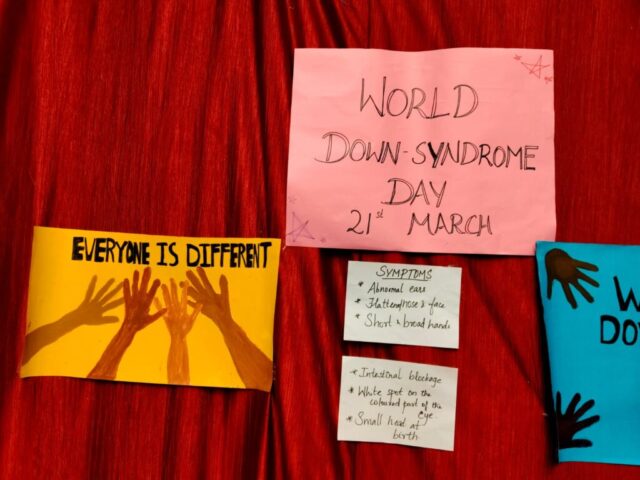 WORLD
DOWN-SYNDROME
DAY
21st MARCH
EVERYONE IS DIFFERENT
SYMPTOMS
* Abnormal ears
* Flattened nose & face
* Short & broad hands
* Intestinal blockage
* White spot on the
coloured part of the
eye.
* Small head at
birth
W
DO